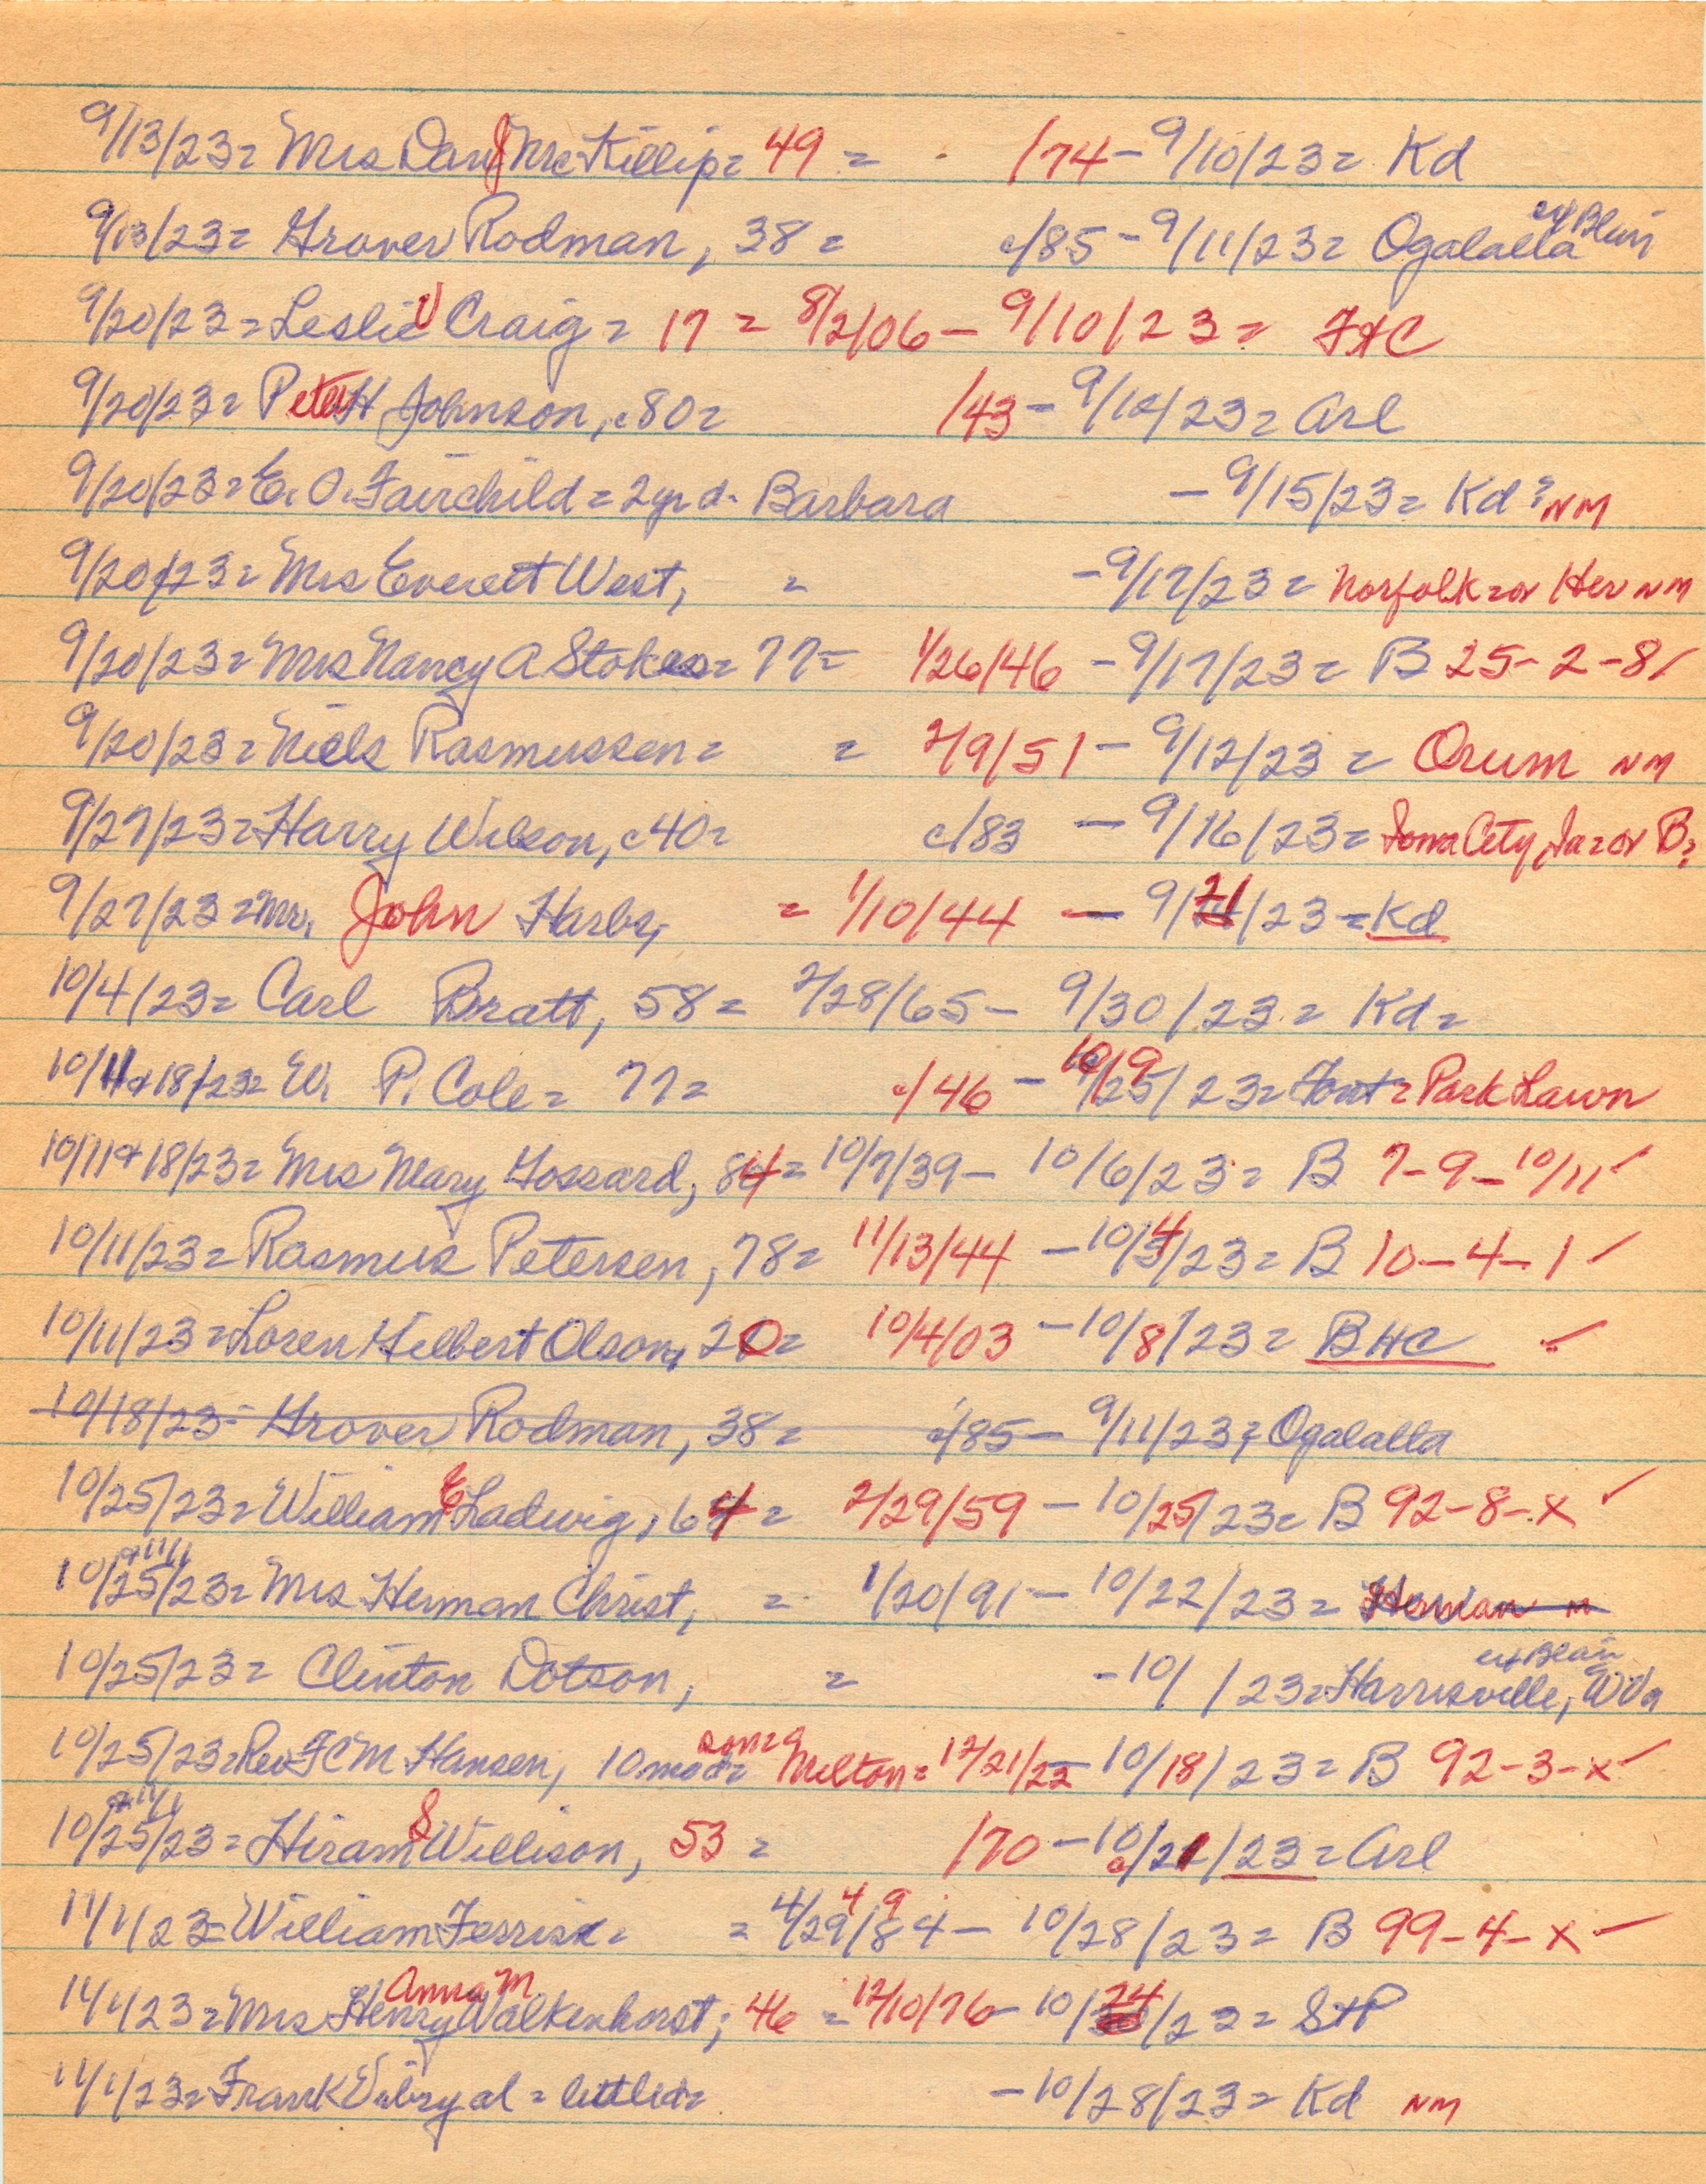 9/13/23= Mrs Dan J McKillip= 49 = /74 - 9/10/23= Kd
9/13/23= Grover Rodman, 38= c/85 - 9/11/23= Ogalalla Blair
9/20/23= Leslie V Craig= 17 = 8/2/06 - 9/10/23=
9/20/23= Peter H Johnson, c80= /43 - 9/10/23= Arl
9/20/23= E. O. Fairchild = 2yr d- Barbara - 9/15/23= Kd? NM
9/20/23= Mrs Everett West, = - 9/17/23= Norfolk=or Her NM
9/20/23= Mrs Nancy A Stokes= 77= 1/26/46 - 9/17/23= B 25-2-8✓
9/20/23= Niels Rasmussen= = 2/9/51 - 9/12/23= Orum NM
9/27/23= Harry Wilson, c40= c/83 - 9/16/23= Iowa City, Ia=or B?
9/27/23= Mr. John Harbs, = 1/10/44 - 9/21/23=Kd
10/4/23= Carl Bratt, 58= 2/28/65 - 9/30/23= Kd=
10/11+18/23= W. P. Cole= 77= c/46 - 10/9/23= Font= Park Lawn
10/11+18/23= Mrs Mary Gossard, 84= 10/7/39 - 10/6/23= B 7-9-10/11✓
10/11/23= Rasmus Petersen, 78= 11/13/44 - 10/4/23= B 10-4-1✓
10/11/23= Loren Hilbert Olson, 20= 10/4/03 - 10/8/23= BHC ✓
10/18/23= Grover Rodman, 38= c/85 - 9/11/23= Ogalalla
10/25/23= William E Ladwig, 64= 2/29/59 - 10/25/23= B 92-8-x✓
10/25/23= Mrs Herman Christ, = 1/20/91 - 10/22/23= Herman
10/25/23= Clinton Dotson, = - 10/ /23= Harrisville, WVa Blair
10/25/23= Rev FCM Hansen, 10mo son= Milton= 12/21/22 - 10/18/23= B 92-3-x✓
10/25/23= Hiram S Willison, 53= /70 - 10/21/23= Arl
11/1/23= William Ferris = 4/29/84 - 10/28/23= B 99-4-x✓
11/1/23= Mrs Henry Anna M Walkenhorst, 46 = 12/10/76 - 10/24/23= StP
11/1/23= Frank = little d= - 10/28/23= Kd NM